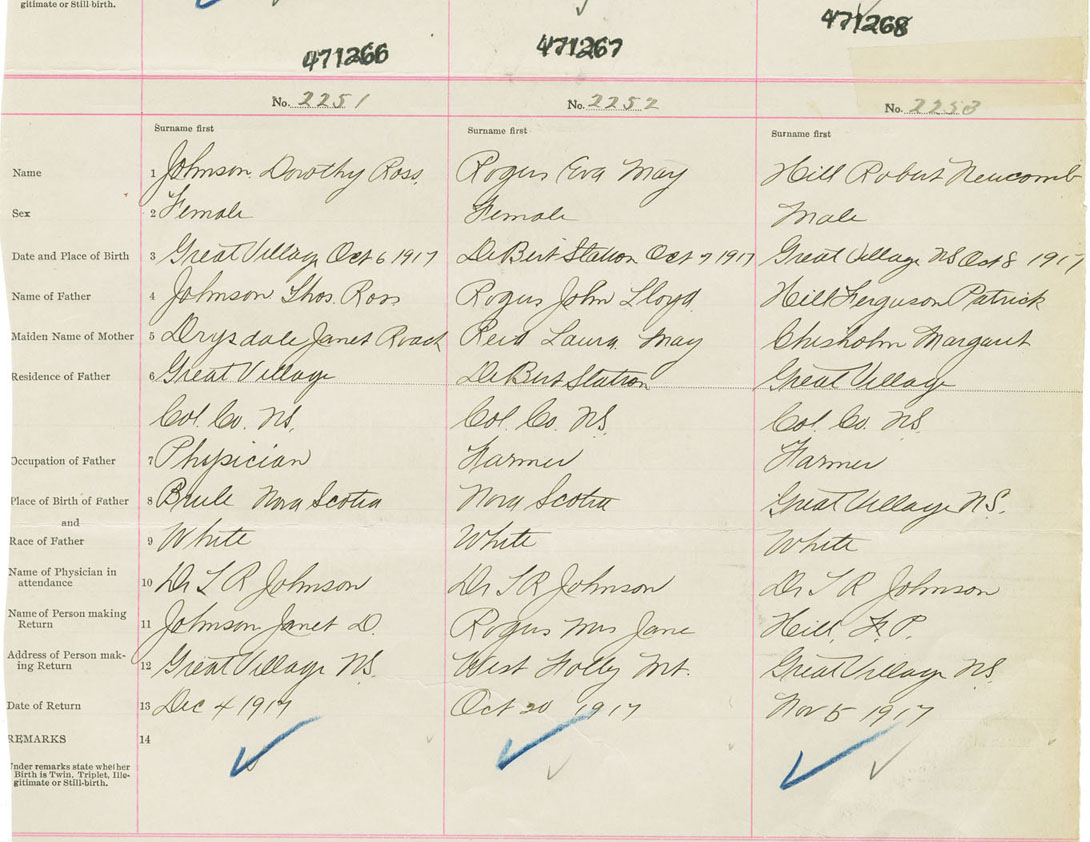 gitimate or Still-birth.
471266 471267 471268
No. 2251 No. 2252 No. 2253
Surname first Surname first Surname first
Name 1 Johnson Dorothy Ross. Rogers Eva May Hill Robert Newcomb
Sex 2 Female Female Male
Date and Place of Birth 3 Great Village Oct 6 1917 DeBert Station Oct 7 1917 Great Village NS Oct 8 1917
Name of Father 4 Johnson Thos. Ross Rogers John Lloyd Hill Ferguson Patrick
Maiden Name of Mother 5 Drysdale Janet Roach Reid Laura May Chisholm Margaret
Residence of Father 6 Great Village DeBert Station Great Village
Col. Co. NS. Col. Co. NS. Col. Co. NS.
Occupation of Father 7 Physician Farmer Farmer
Place of Birth of Father 8 Brule Nova Scotia Nova Scotia Great Village NS.
and
Race of Father 9 White White White
Name of Physician in attendance 10 Dr T R Johnson Dr T R Johnson Dr T R Johnson
Name of Person making Return 11 Johnson Janet D. Rogers Mrs Jane Hill, F. P.
Address of Person mak-ing Return 12 Great Village NS. West Folly Mt. Great Village NS.
Date of Return 13 Dec 4 1917 Oct 20 1917 Nov 5 1917
REMARKS 14
Under remarks state whether
Birth is Twin, Triplet, Ille-
gitimate or Still-birth.